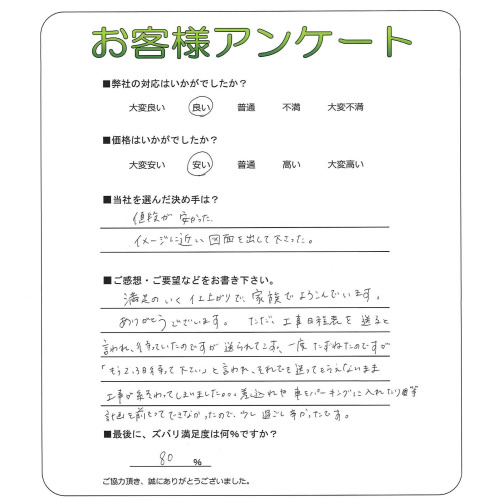 お客様アンケート
■弊社の対応はいかがでしたか?
大変良い 良い 普通 不満 大変不満
■価格はいかがでしたか?
大変安い 安い 普通 高い 大変高い
■当社を選んだ決め手は?
値段が安かった
イメージに近い図面を出して下さった。
■ご感想・ご要望などをお書き下さい。
満足のいく仕上がりで、家族でよろこんでいます。
ありがとうございます。ただ、工事日程表を送ると
言われ、待っていたのですが送られてこず、一度たずねたのですが
「もう2、3日待って下さい」と言われ、それでも送ってもらえないまま
工事が終わってしまいました。。。差込れや車をパーキングに入れたり等
計画を前もってできなかったので、少し過ごし辛かったです。
■最後に、ズバリ満足度は何%ですか?
80 %
ご協力頂き、誠にありがとうございました。